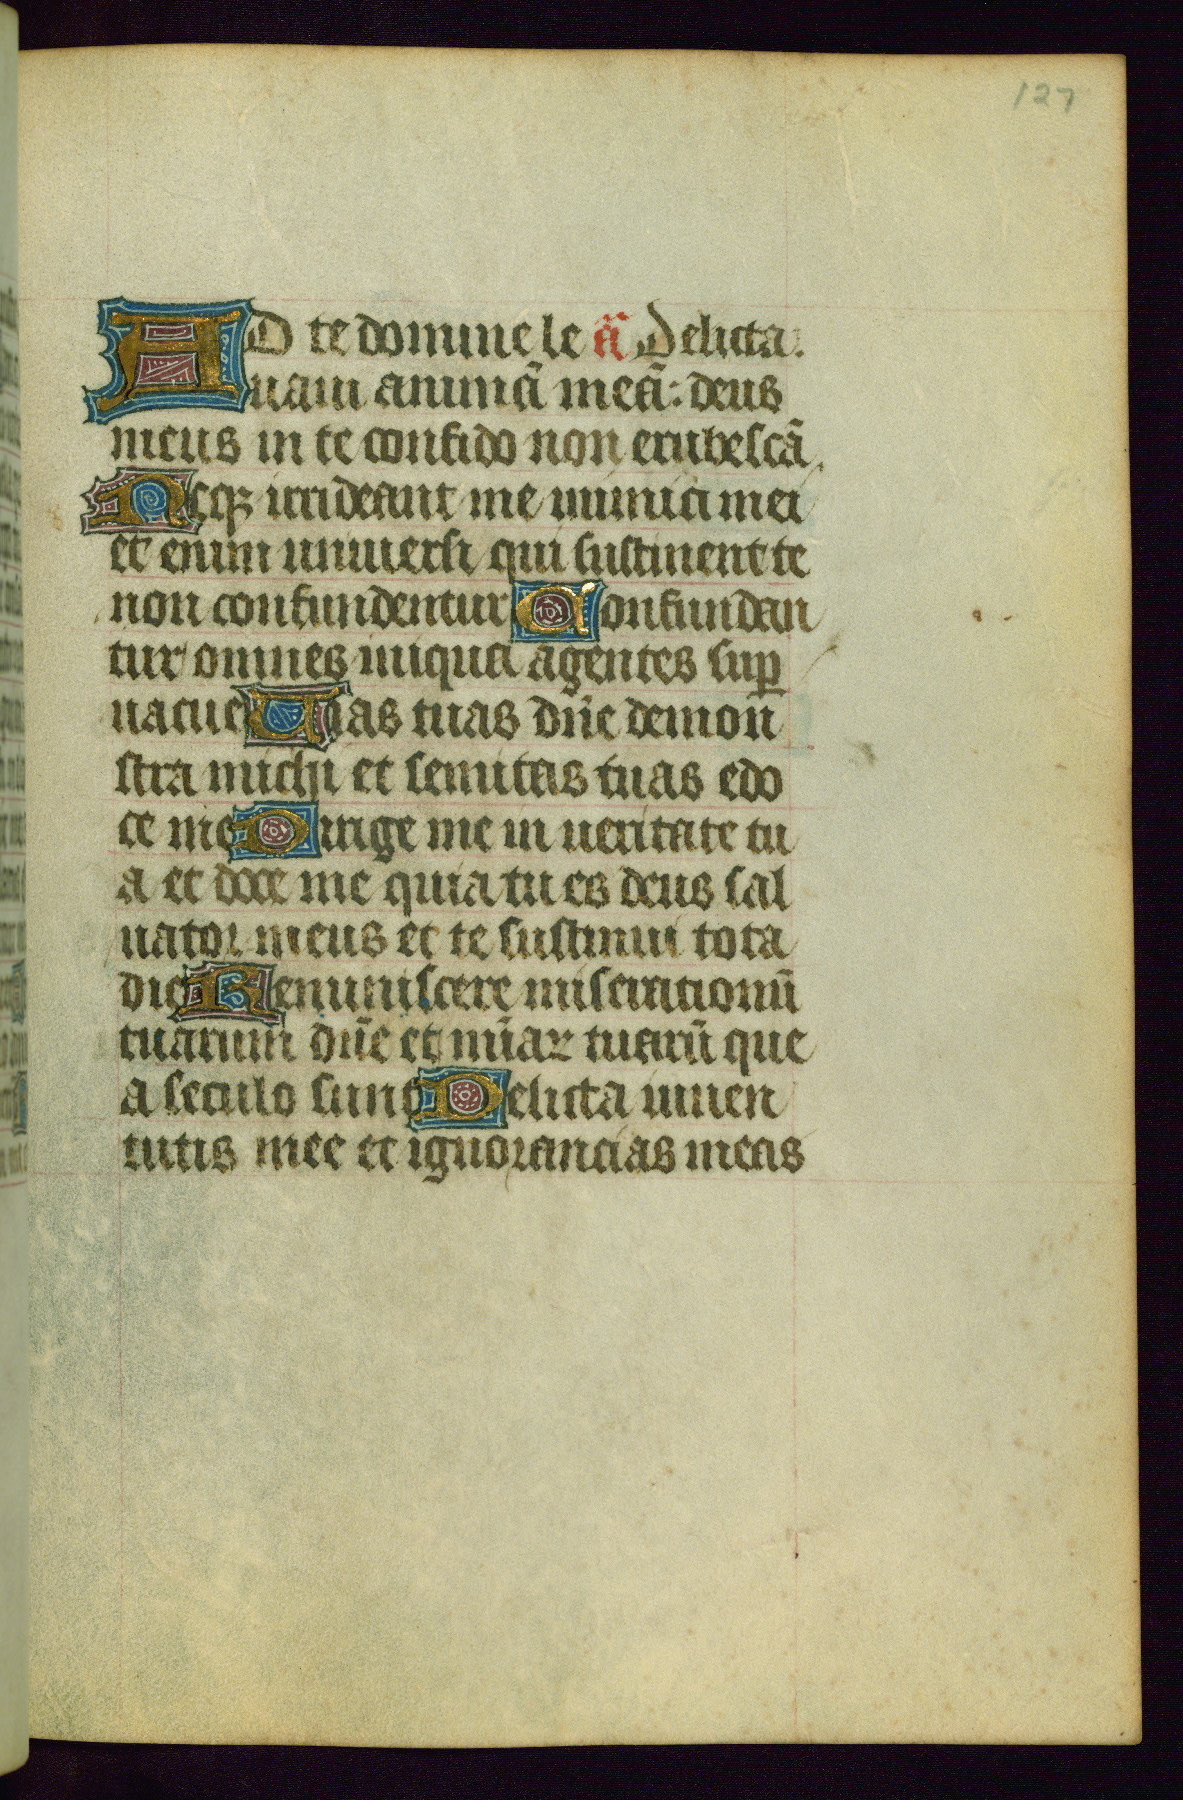 127
AD te domine le ā Delicta.
uaui animā meā: deus
meus in te confido non erubescā
Neqꝫ irrideant me inimici mei
et enim uniuersi qui sustinent te
non confundentur Confundan
tur omnes iniqua agentes suꝑ
uacue Uias tuas dn̄e demon̄
stra michi et semitas tuas edo
ce me Dirige me in ueritate tu
a et doce me quia tu es deus sal
uator meus et te sustinui tota
die Reminiscere miserationū
tuarum dn̄e et mīaꝝ tuarū que
a seculo sunt Delicta iuuen
tutis mee et ignorancias meas